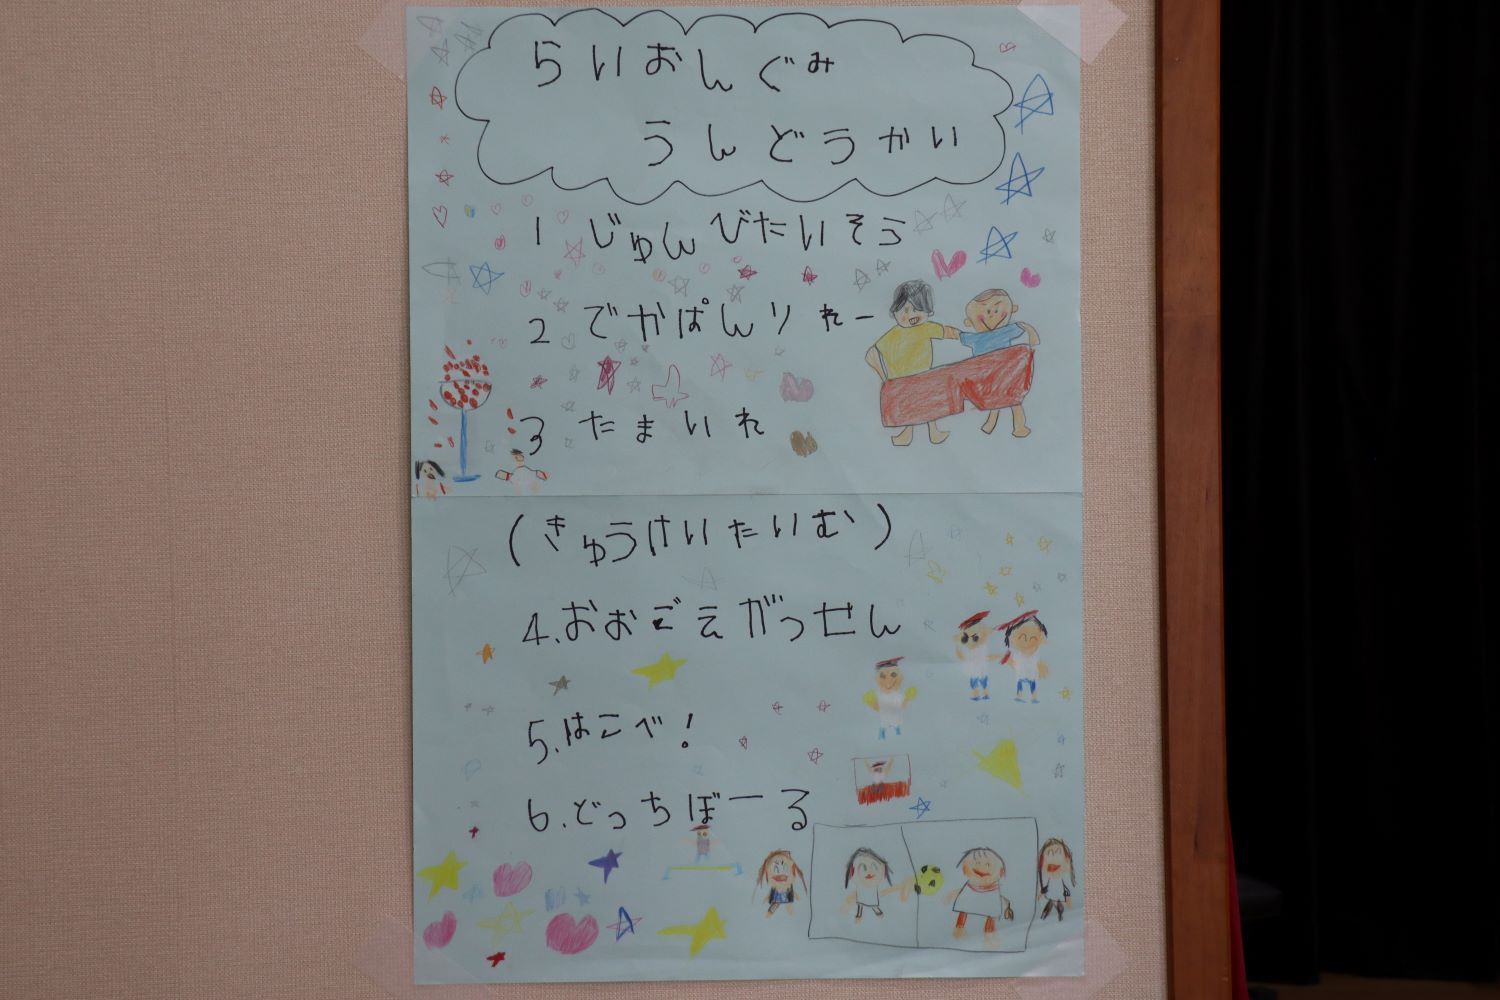 らいおんぐみ
うんどうかい
1 じゅんびたいそう
2 でかぱんりれー
3 たまいれ
(きゅうけいたいむ)
4.おおごえがっせん
5.はこべ!
6.どっちぼーる